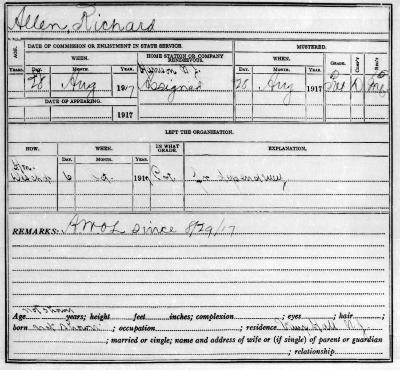 Allen, Richard
DATE OF COMMISSION OR ENLISTMENT IN STATE SERVICE. HOME STATION OR COMPANY RENDEZVOUS. MUSTERED.
AGE. WHEN. WHEN. GRADE. Comp'y Reg't
YEARS. DAY. MONTH. YEAR. DAY. MONTH. YEAR.
28 Aug 1917 Assigned 28 Aug 1917 Pvt D
DATE OF APPEARING.
1917
LEFT THE ORGANIZATION.
HOW. WHEN. IN WHAT GRADE. EXPLANATION.
DAY. MONTH. YEAR.
6 1917 Pvt dependency
REMARKS: AWOL since 8/29/17
not shown
Age years; height feet inches; complexion ; eyes ; hair ;
born not shown ; occupation ; residence N.J.
; married or single; name and address of wife or (if single) of parent or guardian
; relationship